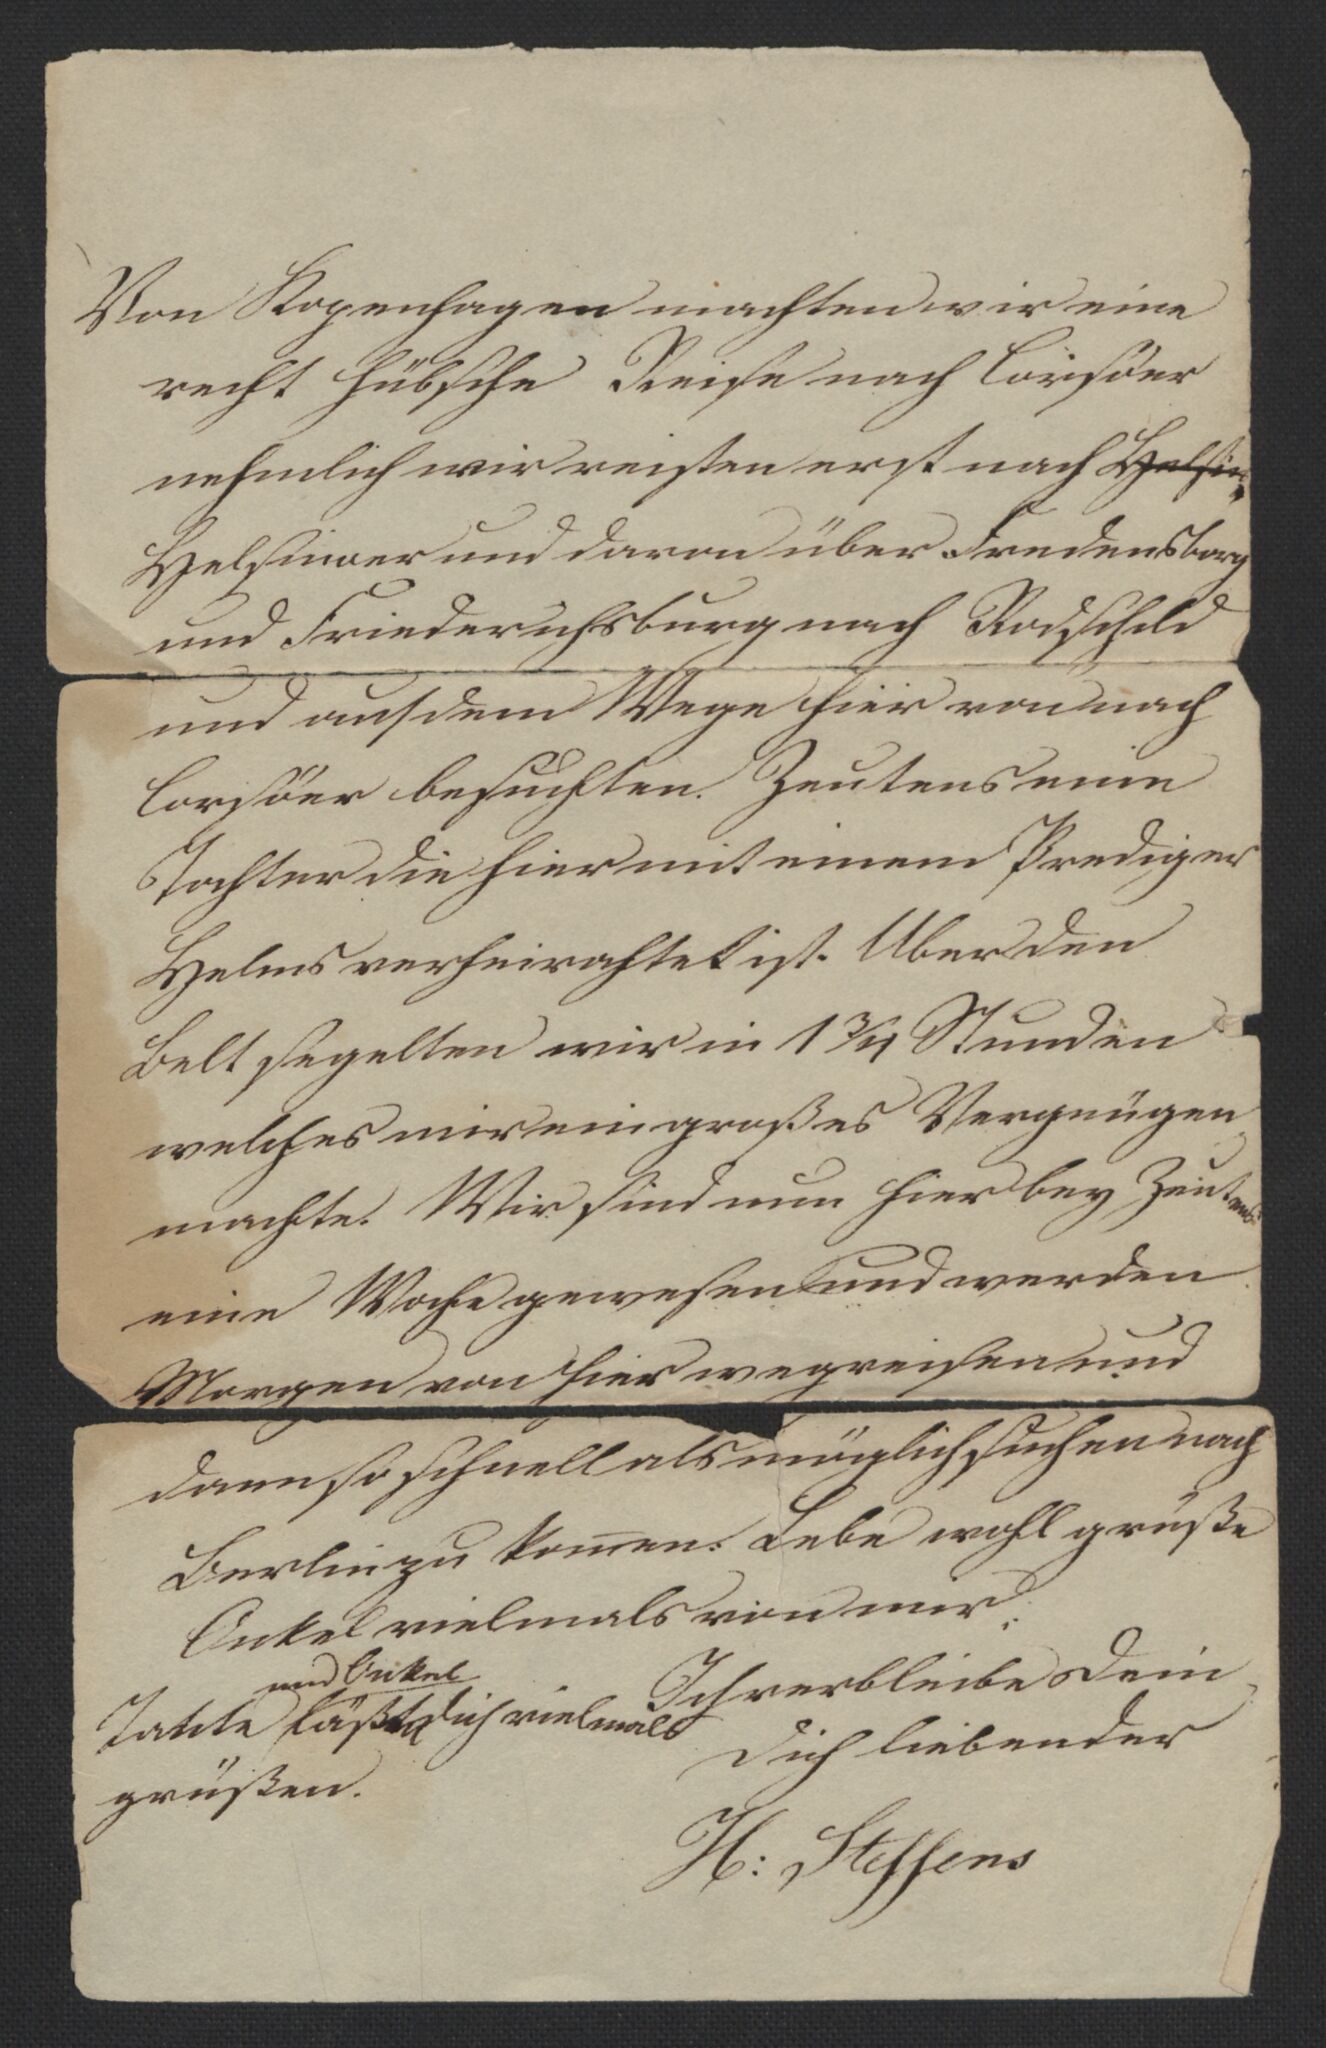 Von Kopenhagen machten wir eine
recht hübsche Reise nach Corsöer
nehmlich wir reisten erst nach Helsin
Helsinoer und davon über Fredensborg
und Friederichsburg nach Rodschild
und auf dem Wege hier von nach
Corsöer besuchten Zeutens eine
Tochter die hier mit einem Prediger
Helms verheirahtet ist. Uber den
Belt segelten wir in 1 3/4 Stunden
welches mir ein großes Vergnügen
machte. Wir sind nun hier bey Zeutens
eine Woche gewesen und werden
Morgen von hier wegreisen und
dann so schnell als möglich suchen nach
Berlin zu komen. Lebe wohl grüße
Onkel vielmals von mir.
Ich verbleibe Dein
Dich liebender
H: Steffens
und Onkel
Tante läßt dich vielmals
grüßen.